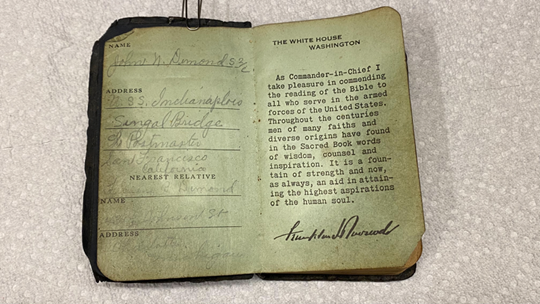 NAME
John N. Dimond S2/c
ADDRESS
U.S.S. Indianaplois
Signal Bridge
℅ Postmaster
San Francisco
California
NEAREST RELATIVE
Dimond
NAME
St
ADDRESS
THE WHITE HOUSE
WASHINGTON
As Commander-in-Chief I
take pleasure in commending
the reading of the Bible to
all who serve in the armed
forces of the United States.
Throughout the centuries
men of many faiths and
diverse origins have found
in the Sacred Book words
of wisdom, counsel and
inspiration. It is a foun-
tain of strength and now,
as always, an aid in attain-
ing the highest aspirations
of the human soul.
Franklin D Roosevelt